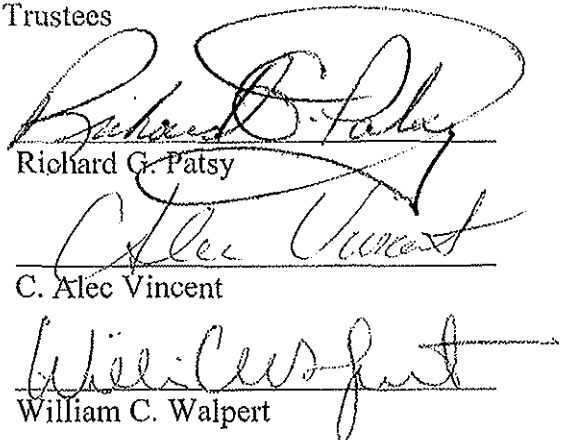 Trustees
Richard G. Patsy
Richard G. Patsy
C Alec Vincent
C. Alec Vincent
William C. Walpert